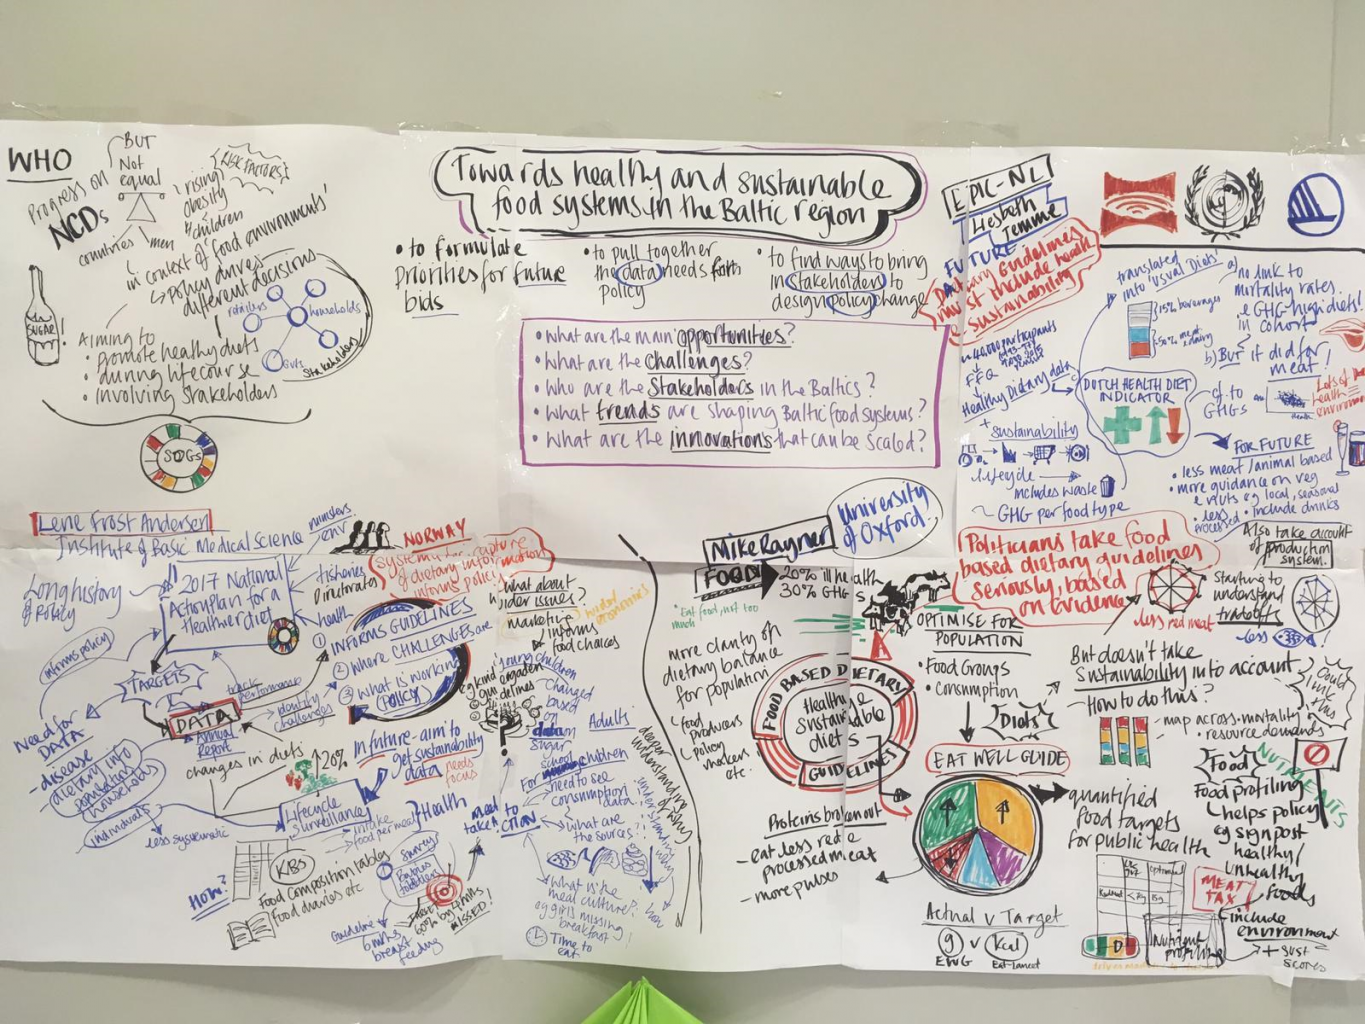 WHO
Progress on
NCDs
BUT
Not
equal
countries
men
rising
obesity
children
RISK FACTORS
in context of 'food environments'
policy drives
different decisions
retailers
households
Govts
Stakeholders
SUGAR!
Aiming to
• promote healthy diets
• during lifecourse
• involving stakeholders
SDGs
Towards healthy and sustainable
food systems in the Baltic region
• to formulate
priorities for future
bids
• to pull together
the data needs for
policy
• to find ways to bring
in stakeholders to
design policy change
• What are the main opportunities?
• What are the challenges?
• Who are the Stakeholders in the Baltics?
• What trends are shaping Baltic food systems?
• What are the innovations that can be scaled?
EPIC-NL
Liesbeth
Temme
FUTURE
Dietary Guidelines
must include health
sustainability
~40,000 participants
FFQ
Healthy Dietary data
+ sustainability
Lifecycle
includes waste
~ GHG per food type
translated
into 'usual Diets'
15% beverages
DUTCH HEALTH DIET
INDICATOR
a) no link to
mortality rates
GHG-high diets!
in cohort
b) BUT it did for
meat!
cf. to
GHGs
FOR FUTURE
• less meat/animal based
• more guidance on veg
e.g. local, seasonal
• less
processed
• include drinks
Lene Frost Andersen
Institute of Basic Medical Science
NORWAY
Systems to capture
of dietary information
informs policy
ministers
env
fisheries
Directorates
health
Long history
of policy
2017 National
Action plan for a
Healthier diet
informs policy
TARGETS
DATA
Annual
Report
track
performance
identify
challenges
① INFORMS GUIDELINES
② Where CHALLENGES are
③ What is working
(POLICY)
Need for
DATA
- disease
dietary info
population
households
individuals
less systematic
changes in diets
↑20%
In future - aim to
get sustainability
data
needs
focus
Lifecycle
Surveillance
Health
intake
food per meal
HOW?
KBS
Food composition tables
Food diaries etc
Surveys
Guideline
6 mths
breast
feeding
MISSED!
what about
wider issues?
marketing
informs
food choices
young children
changed
based
on
data
sugar
school
Adults
For children
need to see
consumption
data
What are
the sources?
What is the
meal culture?
eg girls missing
breakfast!
Time to
eat
need
to
take ACTION
deeper
understanding of
Mike Rayner
University
of Oxford
FOOD
20% ill health
30% GHGs
• Eat food, not too
much
more clarity on
dietary balance
for population
food
producers
policy
makers
etc.
FOOD BASED DIETARY
GUIDELINES
Healthy
sustainable
diets
Proteins broken out
- eat less red &
processed meat
- more pulses
OPTIMISE FOR
POPULATION
• Food Groups
• Consumption
Diets
EAT WELL GUIDE
Actual v Target
g v kcal
EWG
Eat-Lancet
Politicians take food
based dietary guidelines
seriously, based
on evidence
less red meat
Also take account
of production
system.
Starting to
understand
tradeoffs
less
But doesn't take
Sustainability into account
How to do this?
map across - mortality
resource demands
quantified
food targets
for public health
Food
NUTRIENTS
Food profiling
helps policy
eg signpost
healthy/
unhealthy
foods
MEAT
TAX
Nutrient
profiling
include
environment
+ sust
scores